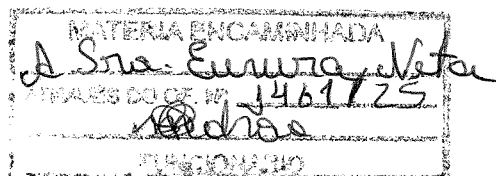 MATÉRIA ENCAMINHADA
A Sra. Eunura Neta
ATRAVÉS DO OF. Nº 1461/25
FUNCIONÁRIO